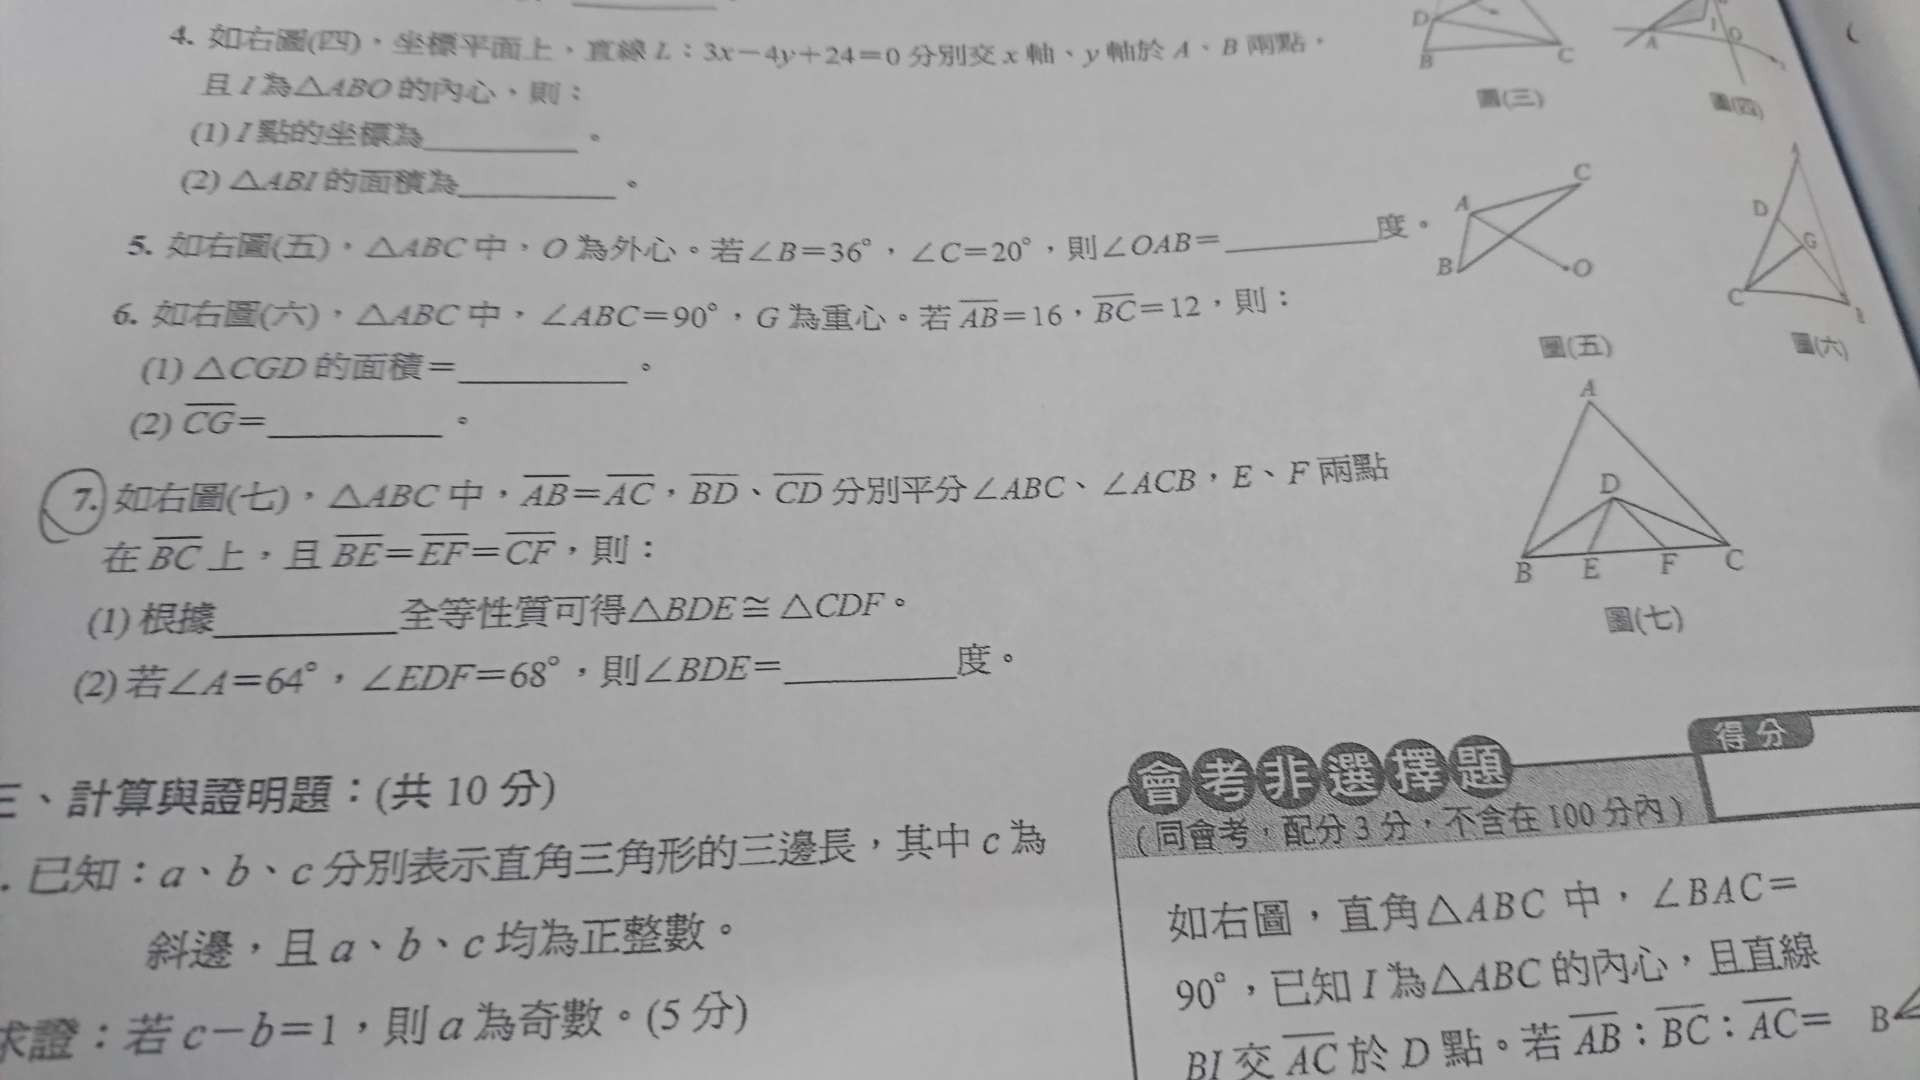 4. 如右圖(四),坐標平面上,直線 L:3x-4y+24=0 分別交 x 軸、y 軸於 A、B 兩點,
且 I 為△ABO 的內心,則:
(1) I 點的坐標為________。
(2) △ABI 的面積為________。
5. 如右圖(五),△ABC 中,O 為外心。若∠B=36°,∠C=20°,則∠OAB=________度。
6. 如右圖(六),△ABC 中,∠ABC=90°,G 為重心。若 AB=16,BC=12,則:
(1) △CGD 的面積=________。
(2) CG=________。
7. 如右圖(七),△ABC 中,AB=AC,BD、CD 分別平分∠ABC、∠ACB,E、F 兩點
在 BC 上,且 BE=EF=CF,則:
(1) 根據________全等性質可得△BDE≅△CDF。
(2) 若∠A=64°,∠EDF=68°,則∠BDE=________度。
D
B
C
圖(三)
A
I
O
圖(四)
A
B
C
O
圖(五)
A
D
G
C
B
圖(六)
A
D
B E F C
圖(七)
三、計算與證明題:(共 10 分)
. 已知:a、b、c 分別表示直角三角形的三邊長,其中 c 為
斜邊,且 a、b、c 均為正整數。
求證:若 c-b=1,則 a 為奇數。(5 分)
會考非選擇題
得分
(同會考,配分 3 分,不含在 100 分內)
如右圖,直角△ABC 中,∠BAC=
90°,已知 I 為△ABC 的內心,且直線
BI 交 AC 於 D 點。若 AB:BC:AC=
B